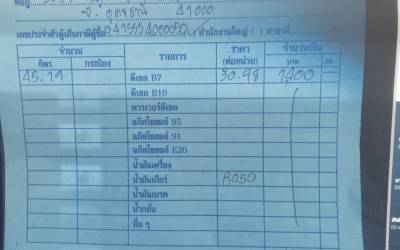 จ. อุดรธานี 41000
เลขประจำตัวผู้เสียภาษีผู้ซื้อ สำนักงานใหญ่ ( ) สาขาที่
จำนวน รายการ ราคา จำนวนเงิน
ลิตร กระป๋อง (ต่อหน่วย) บาท สต.
45.19 ดีเซล B7 30.98 1400
ดีเซล B10
พาวเวอร์ดีเซล
แก๊สโซฮอล์ 95
แก๊สโซฮอล์ 91
แก๊สโซฮอล์ E20
น้ำมันเครื่อง
น้ำมันเกียร์
น้ำมันเบรค
น้ำกลั่น
อื่น ๆ